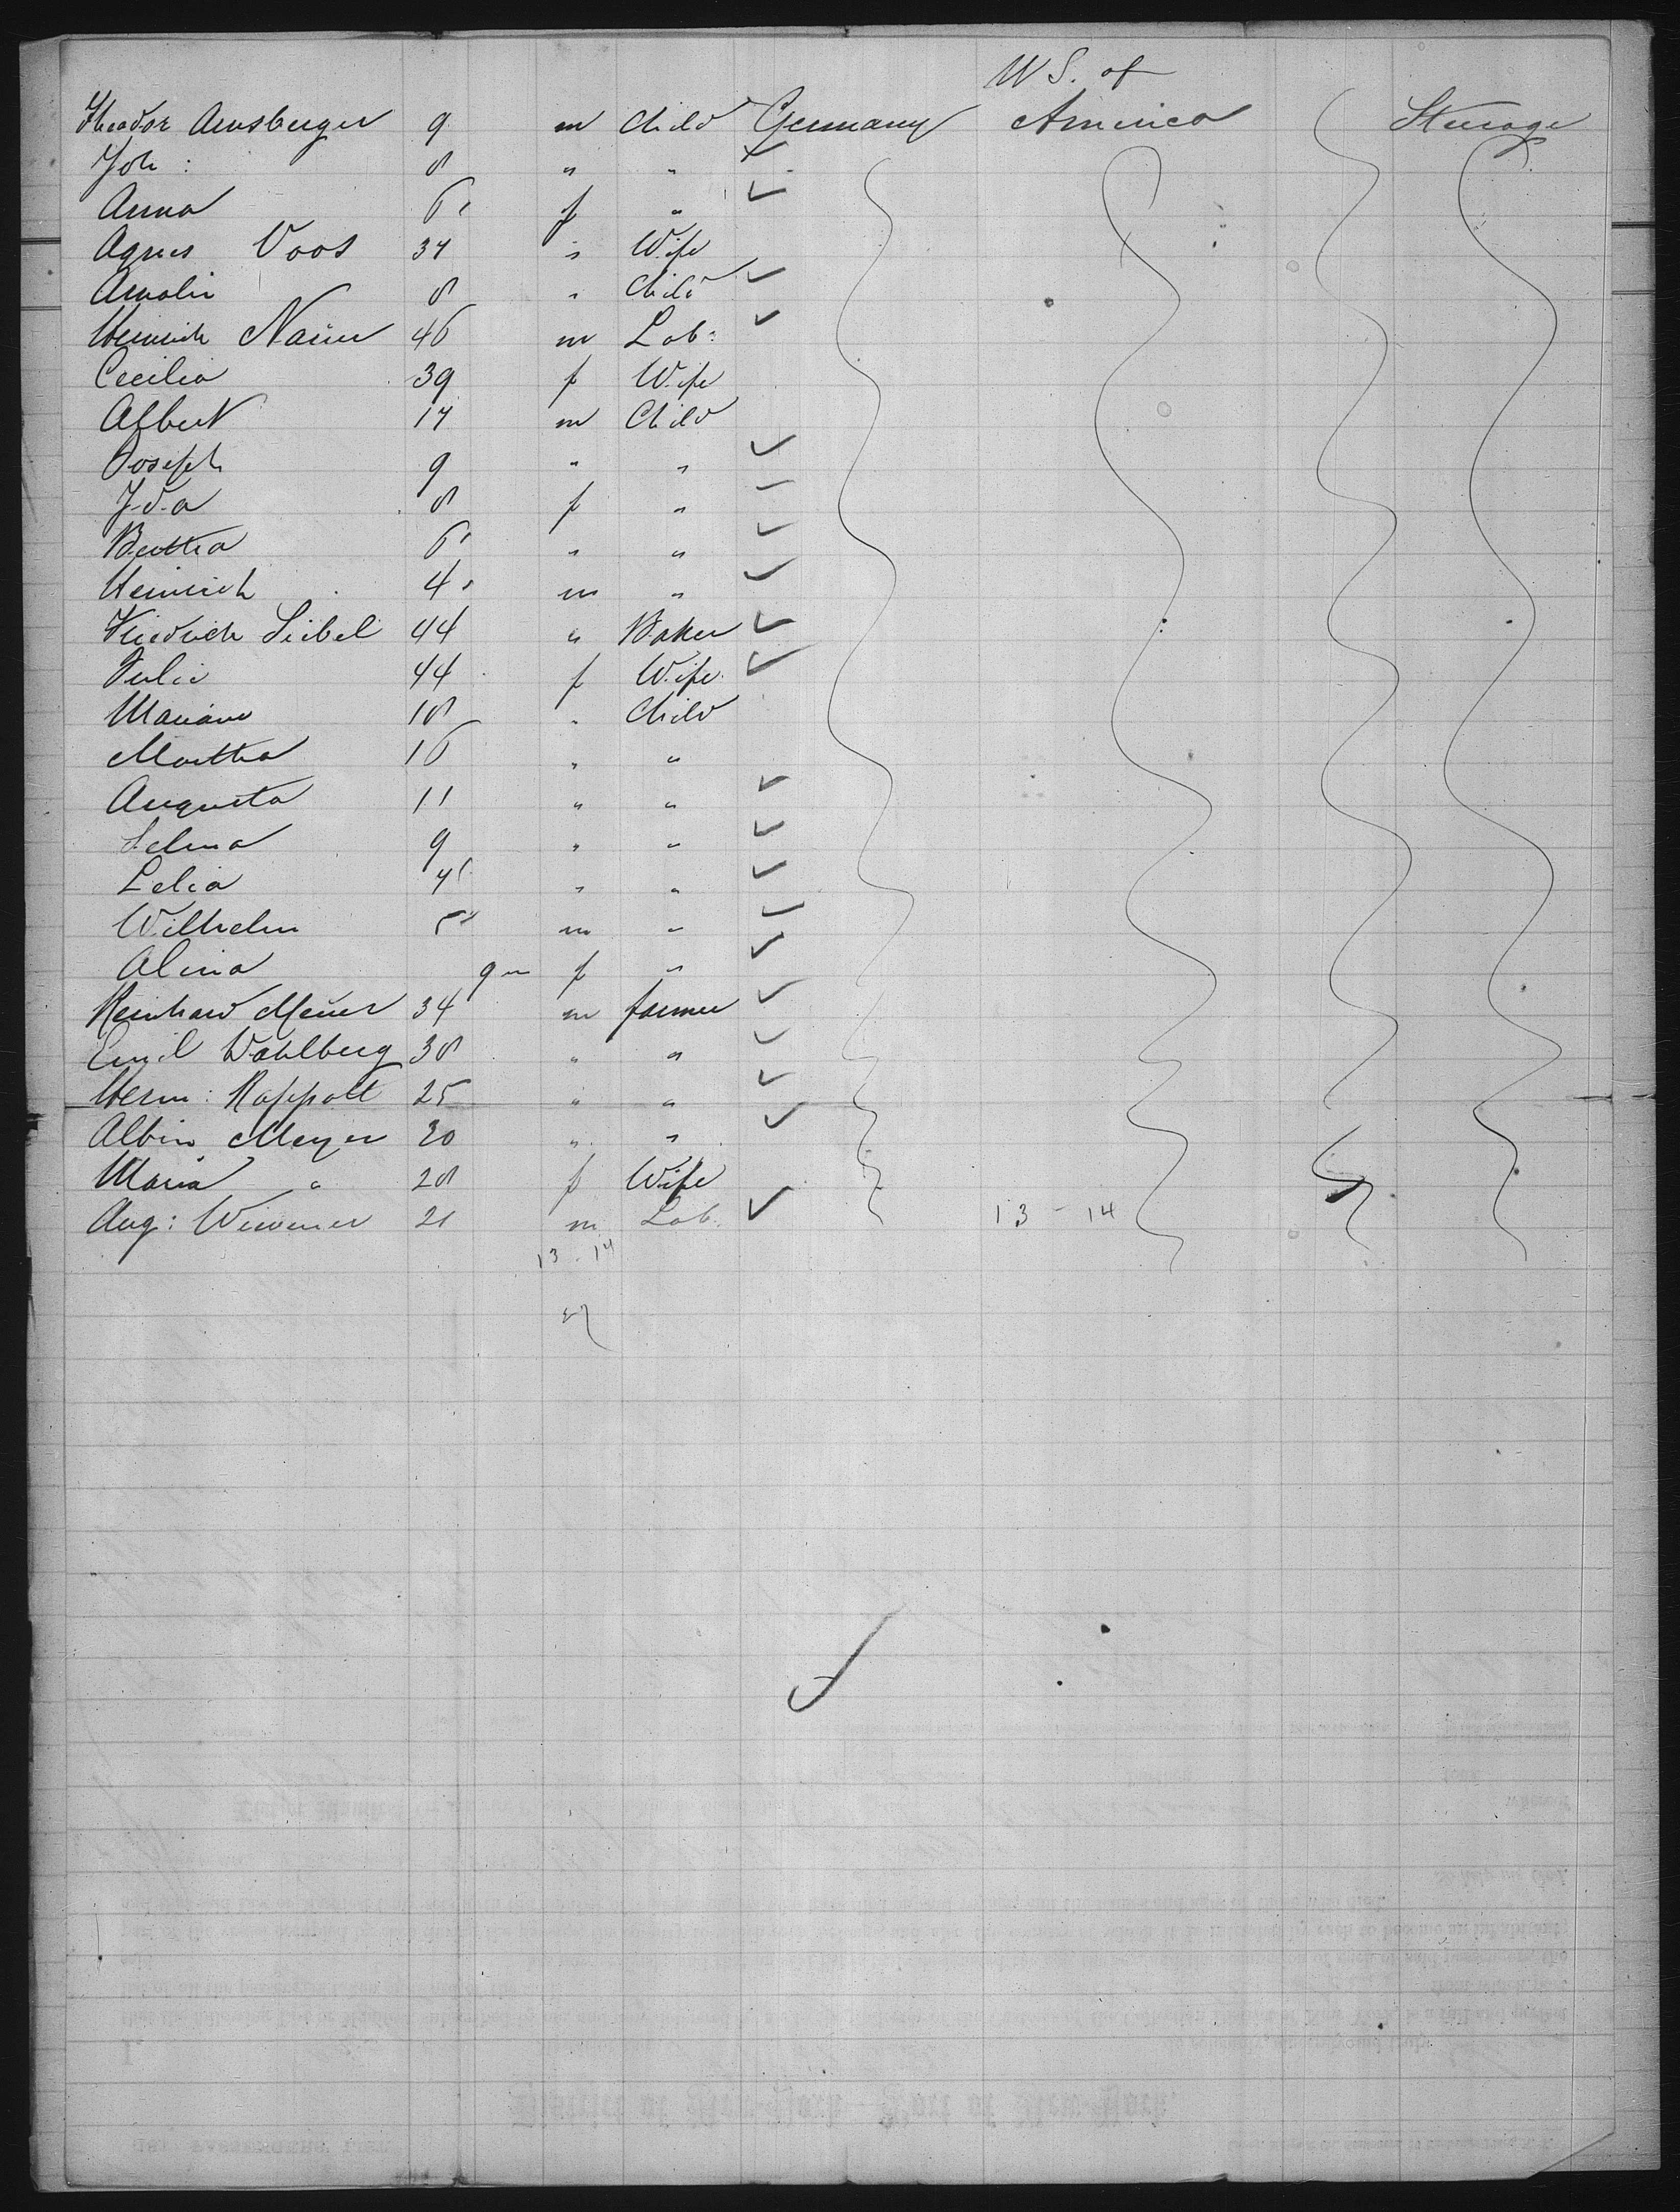 U S. of
Theodor Arnsberger 9 m Child Germany America Steerage
Joh: 8 " "
Anna 6 f "
Agnes Voos 34 " Wife
Amalie 8 " Child
Heinrich 46 m Lab:
Cecilia 39 f Wife
Albert 14 m Child
Joseph 9 " "
Ida 8 f "
Bertha 6 " "
Heinrich 4 m "
Friedrich Seibel 44 " Baker
Julie 44 f Wife
Mariane 18 " Child
Martha 16 " "
Augusta 11 " "
Selma 9 " "
Lelia 7 " "
Wilhelm 5 m "
Alina 9 m f "
Reinhard Meier 34 m farmer
Emil Wahlberg 38 " "
Herm: Rappolt 25 " "
Albin Meyer 30 " "
Maria " 28 f Wife
Aug: 21 m Lab. 13-14
13-14
27